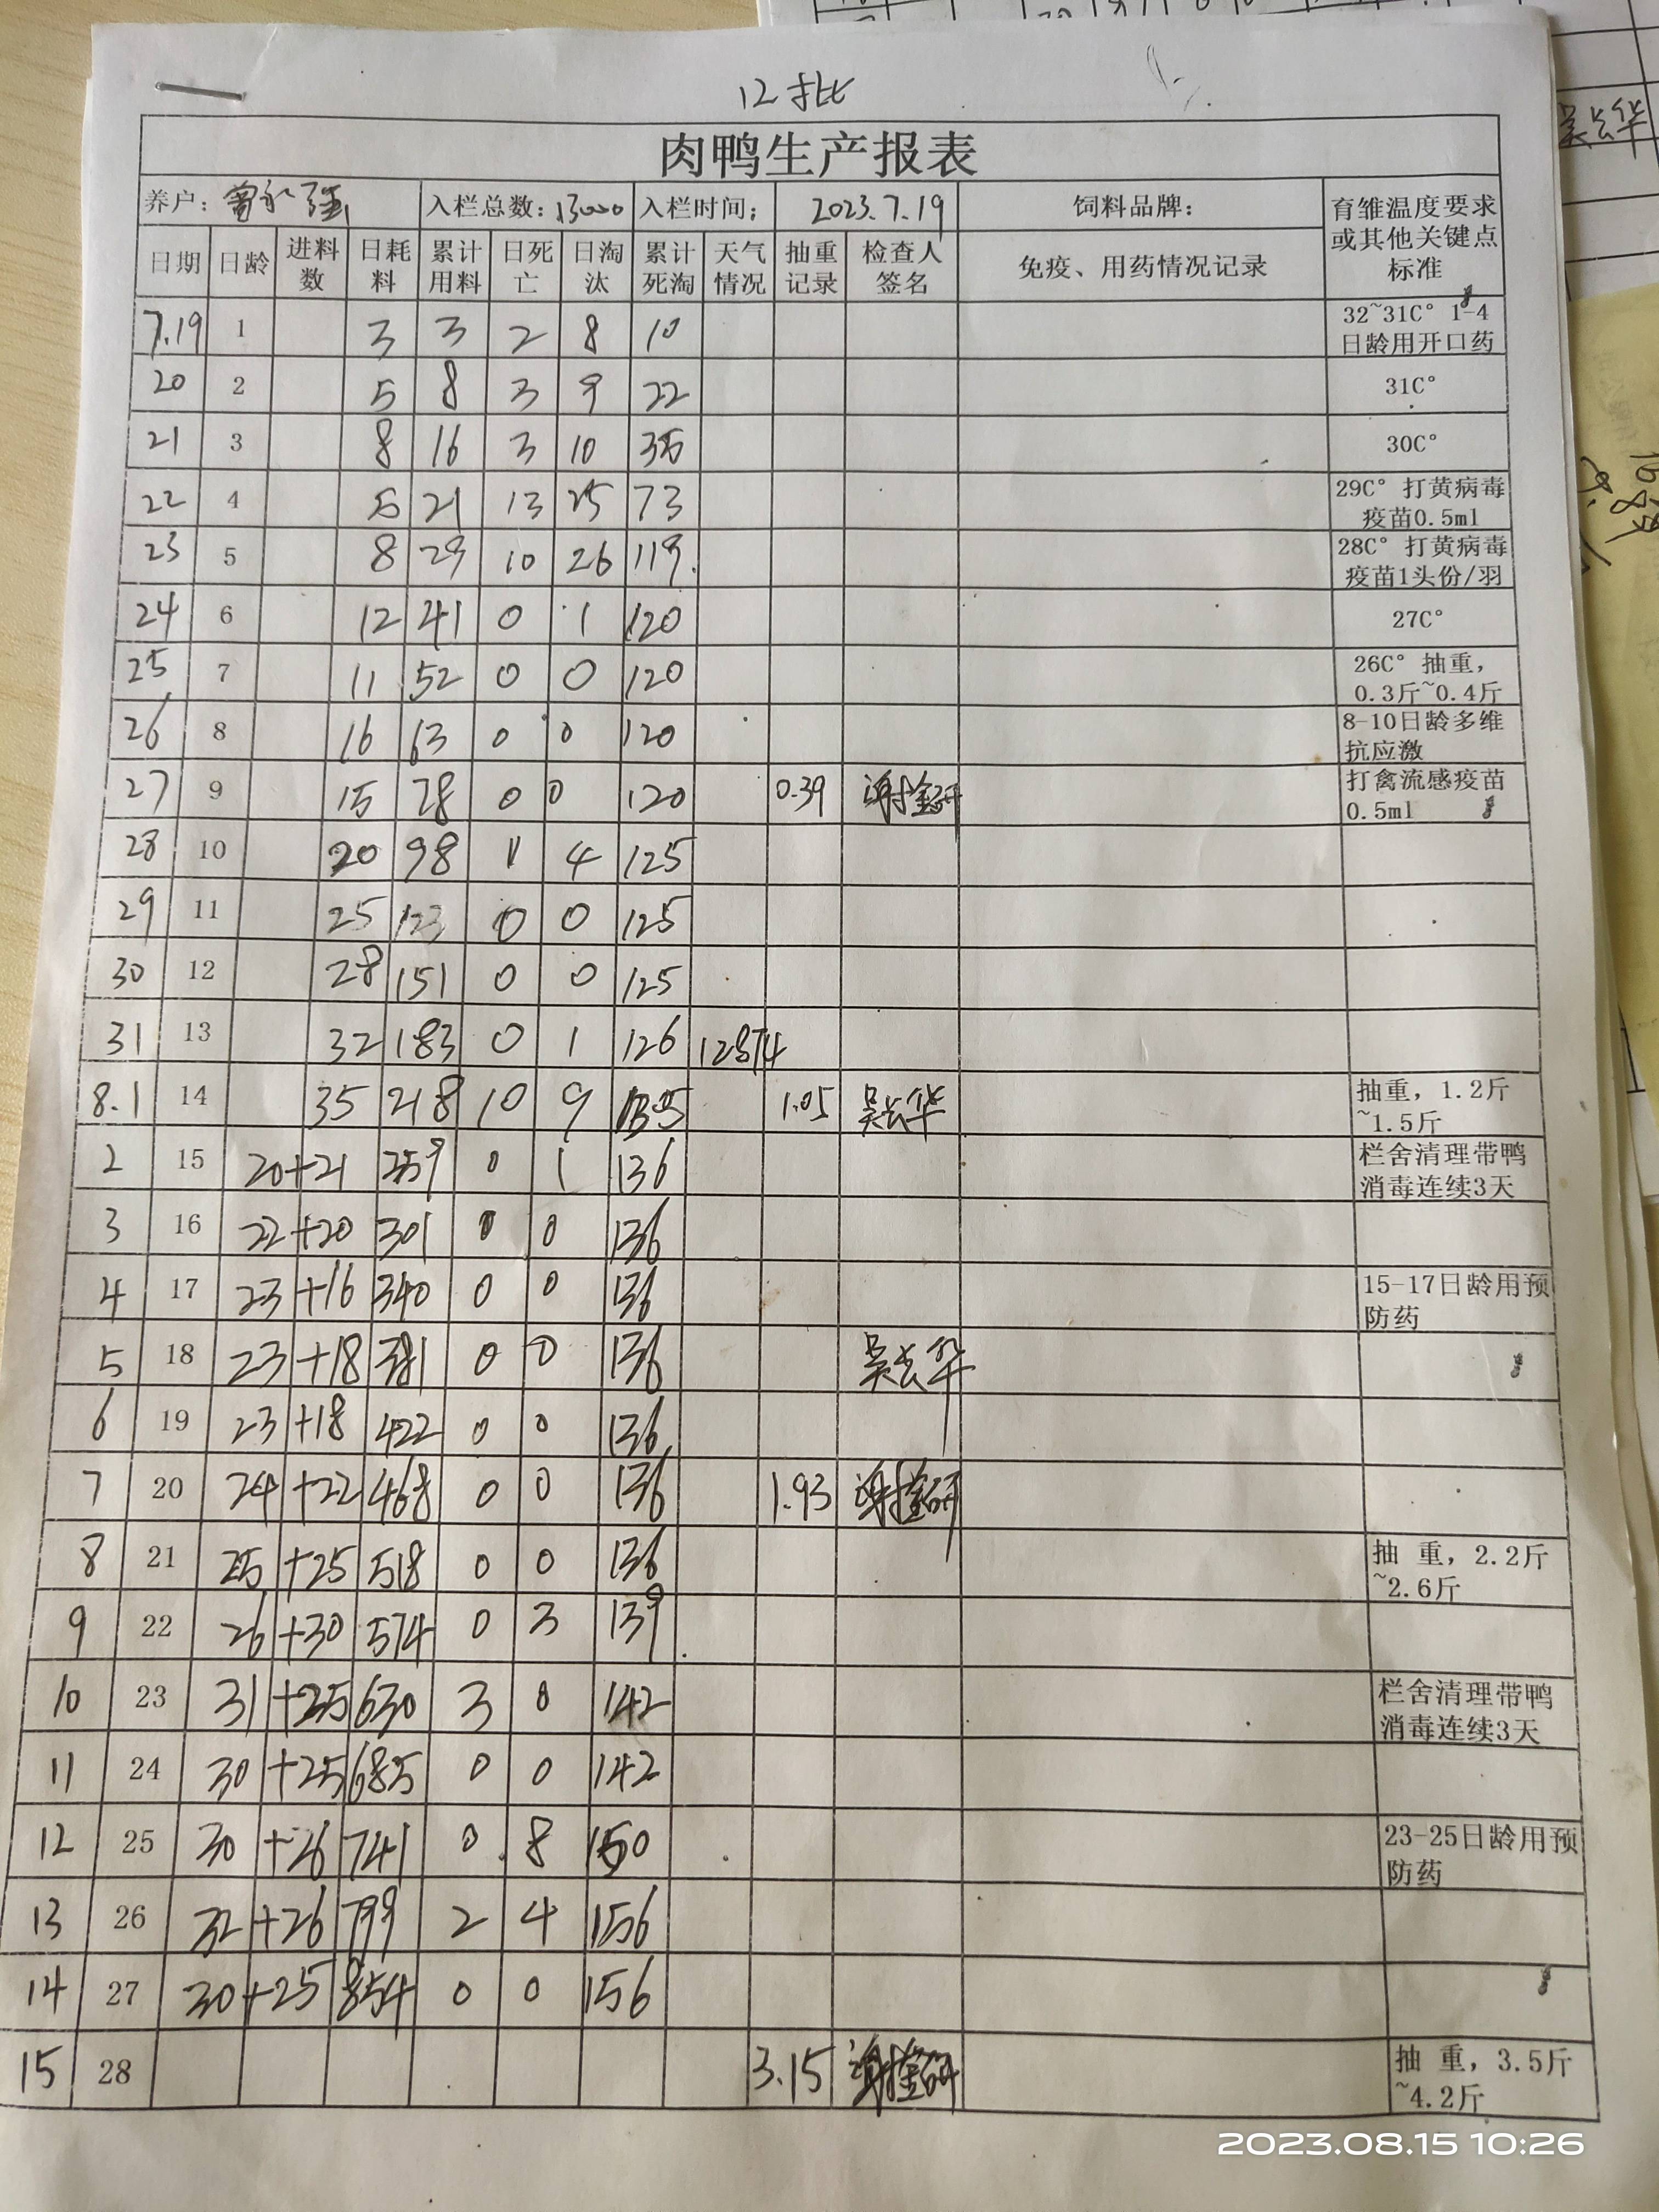 12批
肉鸭生产报表
养户： 入栏总数：13000 入栏时间； 2023.7.19 饲料品牌： 育雏温度要求或其他关键点标准
日期 日龄 进料数 日耗料 累计用料 日死亡 日淘汰 累计死淘 天气情况 抽重记录 检查人签名 免疫、用药情况记录
7.19 1 3 3 2 8 10 32~31C° 1-4日龄用开口药
20 2 5 8 3 9 22 31C°
21 3 8 16 3 10 35 30C°
22 4 5 21 13 25 73 29C° 打黄病毒疫苗0.5ml
23 5 8 29 10 26 119. 28C° 打黄病毒疫苗1头份/羽
24 6 12 41 0 1 120 27C°
25 7 11 52 0 0 120 26C° 抽重，0.3斤~0.4斤
26 8 16 63 0 0 120 8-10日龄多维抗应激
27 9 15 78 0 0 120 0.39 打禽流感疫苗0.5ml
28 10 20 98 1 4 125
29 11 25 123 0 0 125
30 12 28 151 0 0 125
31 13 32 183 0 1 126 12874
8.1 14 35 218 10 9 135 1.05 吴长华 抽重，1.2斤~1.5斤
2 15 20+21 259 0 1 136 栏舍清理带鸭消毒连续3天
3 16 22+20 301 0 0 136
4 17 23+16 340 0 0 136 15-17日龄用预防药
5 18 23+18 381 0 0 136 吴长华
6 19 23+18 422 0 0 136
7 20 24+22 468 0 0 136 1.93
8 21 25+25 518 0 0 136 抽 重，2.2斤~2.6斤
9 22 26+30 574 0 3 139
10 23 31+25 630 3 0 142 栏舍清理带鸭消毒连续3天
11 24 30+25 685 0 0 142
12 25 30+26 741 0 8 150 23-25日龄用预防药
13 26 32+26 799 2 4 156
14 27 30+25 854 0 0 156
15 28 3.15 抽 重，3.5斤~4.2斤
2023.08.15 10:26